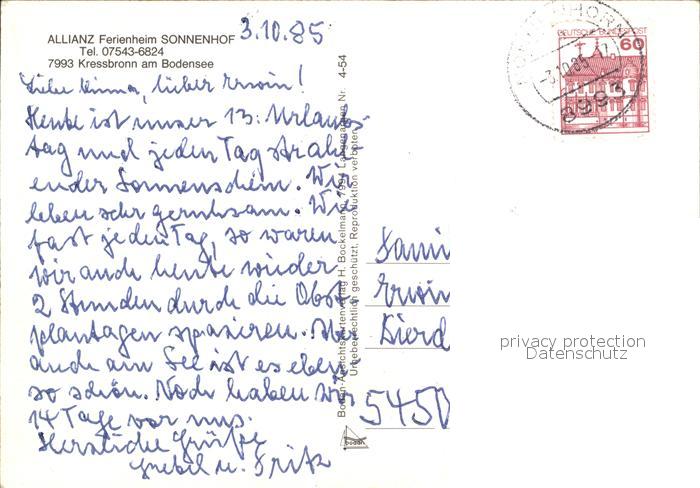 3.10.85
ALLIANZ Ferienheim SONNENHOF
Tel. 07543-6824
7993 Kressbronn am Bodensee
Liebe Emma, lieber Erwin!
Heute ist unser 13. Urlaubs-
tag und jeden Tag strahl-
ender Sonnenschein. Wir
leben sehr geruhsam. Wie
fast jeden Tag, so waren
wir auch heute wieder
2 Stunden durch die Obst
plantagen spazieren. Aber
auch am See ist es eben
so schön. Noch haben wir
14 Tage vor uns.
Herzliche Grüße
u. Fritz
Boden-Ansichtskartenverlag H. Bockelmann, 7994 Langenargen Nr. 4-54
Urheberrechtlich geschützt, Reproduktion verboten
boden
DEUTSCHE BUNDESPOST
60
-3.10.85
8993
Erwin
Dierd
5450
privacy protection
Datenschutz